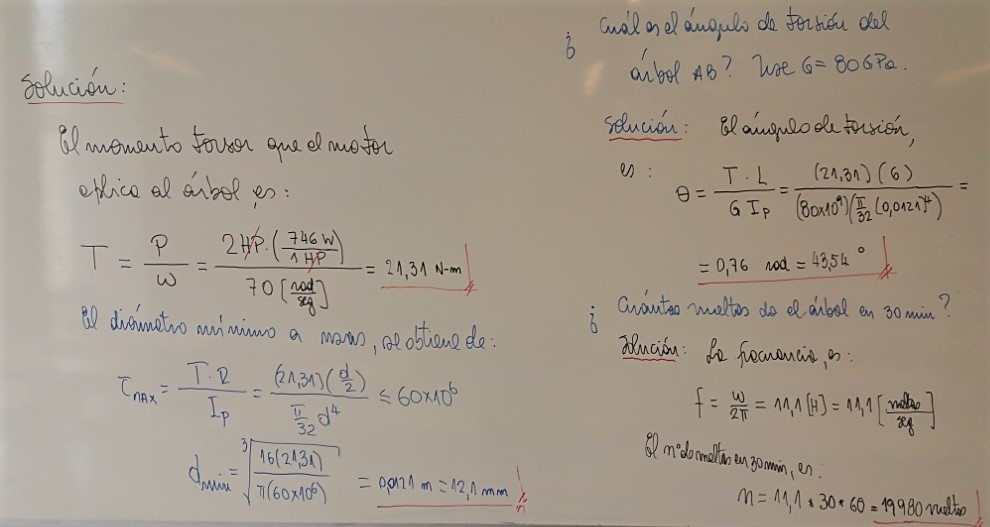 Solución:
El momento torsor que el motor
aplica al árbol, es:
T = P/ω = 2 HP·(746 W/1 HP) / 70 [rad/seg] = 21,31 N-m
El diámetro mínimo a usar, se obtiene de:
τ_MAX = T·R/I_P = (21,31)(d/2) / (π/32 d⁴) ≤ 60x10⁶
d_min = ∛(16(21,31) / π(60x10⁶)) = 0,0121 m = 12,1 mm
¿ Cuál es el ángulo de torsión del
árbol AB? Use G = 80 GPa.
Solución: El ángulo de torsión,
es: θ = T·L/G I_P = (21,31)(6) / (80x10⁹)(π/32 (0,0121)⁴) =
= 0,76 rad = 43,54°
¿ Cuántas vueltas da el árbol en 30 min?
Solución: La frecuencia, es:
f = ω/2π = 11,1 [H] = 11,1 [vueltas/seg]
El nº de vueltas en 30 min, es:
n = 11,1 * 30 * 60 = 19980 vueltas